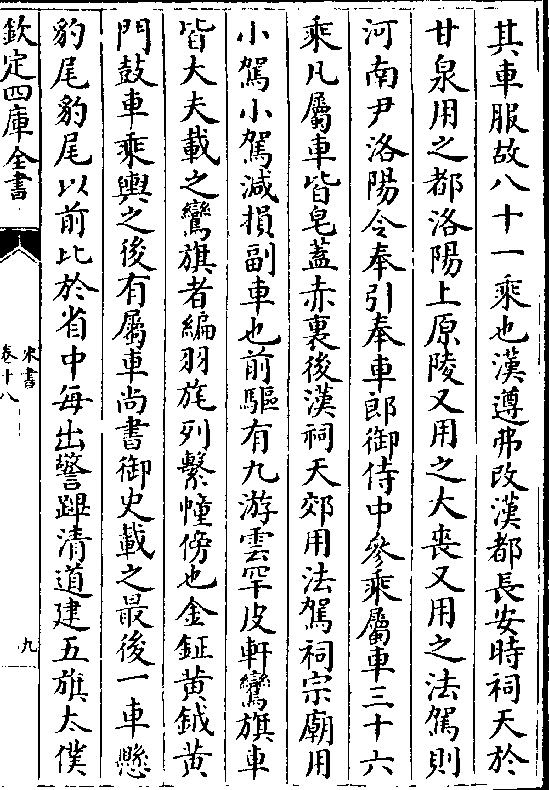 其車服故八十一乘也漢遵弗改漢都長安時祠天於
甘泉用之都洛陽上原陵又用之大喪又用之法駕則
河南尹洛陽令奉引奉車郎御侍中參乘屬車三十六
乘凡屬車皆皂蓋赤裏後漢祠天郊用法駕祠宗廟用
小駕小駕減損副車也前驅有九游雲罕皮軒鸞旗車
皆大夫載之鸞旗者編羽旄列繫幢傍也金鉦黃鉞黃
門鼓車乘輿之後有屬車尚書御史載之最後一車懸
豹尾豹尾以前比於省中每出警蹕清道建五旗太僕
欽定四庫全書
宋書
卷十八
九